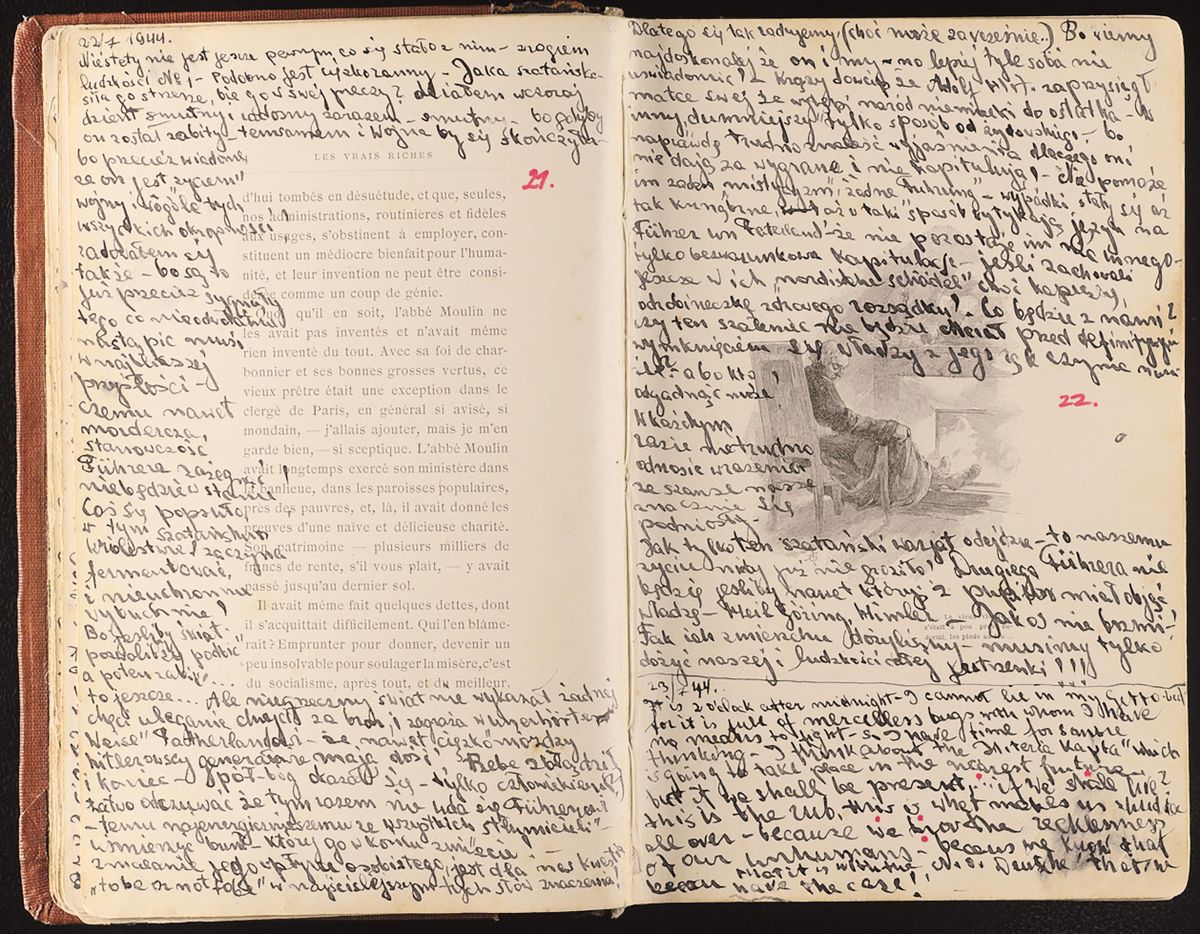 22/7 1944.
Niestety nie jest jeszcze pewnym co się stało z nim – wrogiem
ludzkości Nr 1 – Podobno jest ciężko ranny – Jaka szatańska
siła go strzeże, bierze go w swej pieczy? Miałem wczoraj
dzień smutny i radosny zarazem – smutny – bo gdyby
on został zabity – temsamem i wojna by się skończyła –
bo przecież wiadome
że on jest "życiem"
wojny i wogóle tych
wszystkich okropności
radowałem się
także – bo są to
już przecież sygnały
tego co nieodwołalnie
nastąpić musi
w najbliższej
przyszłości –
czemu nawet
mordercza,
stanowczość
Führera zażegnać
nie będzie w stanie!
Coś się popsuło,
w tym szatańskim
królestwie! zaczyna
fermentować,
i nieuchronnie
wybuchnie!
Bo jeśliby świat
pozwolił się podbić
a potem zabić...
to jeszcze... Ale niegrzeczny świat nie wykazał żadnej
chęci ulegania chwycił za broń, i zagraża w "unerhörter
Weise" Vaterlandowi – że, nawet ciężkomózdzy
hitlerowscy generałowie mają dość!
i koniec – pół-bóg okazał się – tylko człowiekiem
łatwo odczuwać że tym razem nie uda się Führerowi
– temu najenergiczniejszemu ze wszystkich
uśmierzyć bunt – który go w końcu zmiecie.
zmalenie jego wpływu osobistego, jest dla nas kwestią
"to be or not to be" w najściślejszym tych słów znaczeniu!
LES VRAIS RICHES
21.
d'hui tombés en désuétude, et que, seules,
nos administrations, routinières et fidèles
aux usages, s'obstinent à employer, con-
stituent un médiocre bienfait pour l'huma-
nité, et leur invention ne peut être consi-
dérée comme un coup de génie.
Quoi qu'il en soit, l'abbé Moulin ne
les avait pas inventés et n'avait même
rien inventé du tout. Avec sa foi de char-
bonnier et ses bonnes grosses vertus, ce
vieux prêtre était une exception dans le
clergé de Paris, en général si avisé, si
mondain, — j'allais ajouter, mais je m'en
garde bien, — si sceptique. L'abbé Moulin
avait longtemps exercé son ministère dans
la banlieue, dans les paroisses populaires,
près des pauvres, et, là, il avait donné les
preuves d'une naïve et délicieuse charité.
Son patrimoine — plusieurs milliers de
francs de rente, s'il vous plaît, — y avait
passé jusqu'au dernier sol.
Il avait même fait quelques dettes, dont
il s'acquittait difficilement. Qui l'en blâme-
rait? Emprunter pour donner, devenir un
peu insolvable pour soulager la misère, c'est
du socialisme, après tout, et du meilleur.
Dlatego się tak radujemy, (choć może za wcześnie..) Bo wiemy
najdoskonalej że on i my – no lepiej tyle sobie nie
uświadomić! – Krąży dowcip że Adolf Hit. zaprzysiągł
matce swej że wytępi naród niemiecki do ostatka – W
inny "dumniejszy" tylko sposób od żydowskiego – bo
naprawdę trudno znaleść wyjaśnienia dlaczego oni
nie dają za wygraną i nie kapitulują! – Nie pomoże
im żaden "mistycyzm", żadne Führung – wypadki stały się aż
tak kunsztowne, w taki sposób wytykają język na
Führer un Faterland – że nie pozostaje im nic innego –
tylko bezwarunkowa kapitulacja – jeśli zachowali
jeszcze w ich "nordischen schädel" choć kapeczkę,
odrobineczkę zdrowego rozsądku! Co będzie z nami?
czy ten szaleniec nie będzie chciał przed definitywnym
wymknięciem się władzy z jego rąk
abo kto
odgadnąć może!
W każdym
razie nietrudno
odnosić wrażenia
że szanse nasze
znacznie się
podniosły –
Jak tylko ten szatański warjat odejdzie – to naszemu
życiu nicby już nie groziło! Drugiego Führera nie
będzie jeśliby nawet któryś z pupilów miał objąć
władzę – Heil Göring, Himler – Jakoś nie brzmi –
Tak ich zmierzchu dożyliśmy – musimy tylko
dożyć naszej i ludzkości całej jutrzenki!!!
22.
23/7 44.
It is 2 o'clock after midnight – I cannot lie in my Getto-bed
for it is full of merciless bugs with whom I have
no means to fight – so I have time for some
thinking – I think about the which
is going to take place in the nearest future
but if we shall be present... if we shall live?
this is the rub, this is what makes us shudder
all over – because we know the recklessness
of our unhumans – because we know that
that we
have the case!